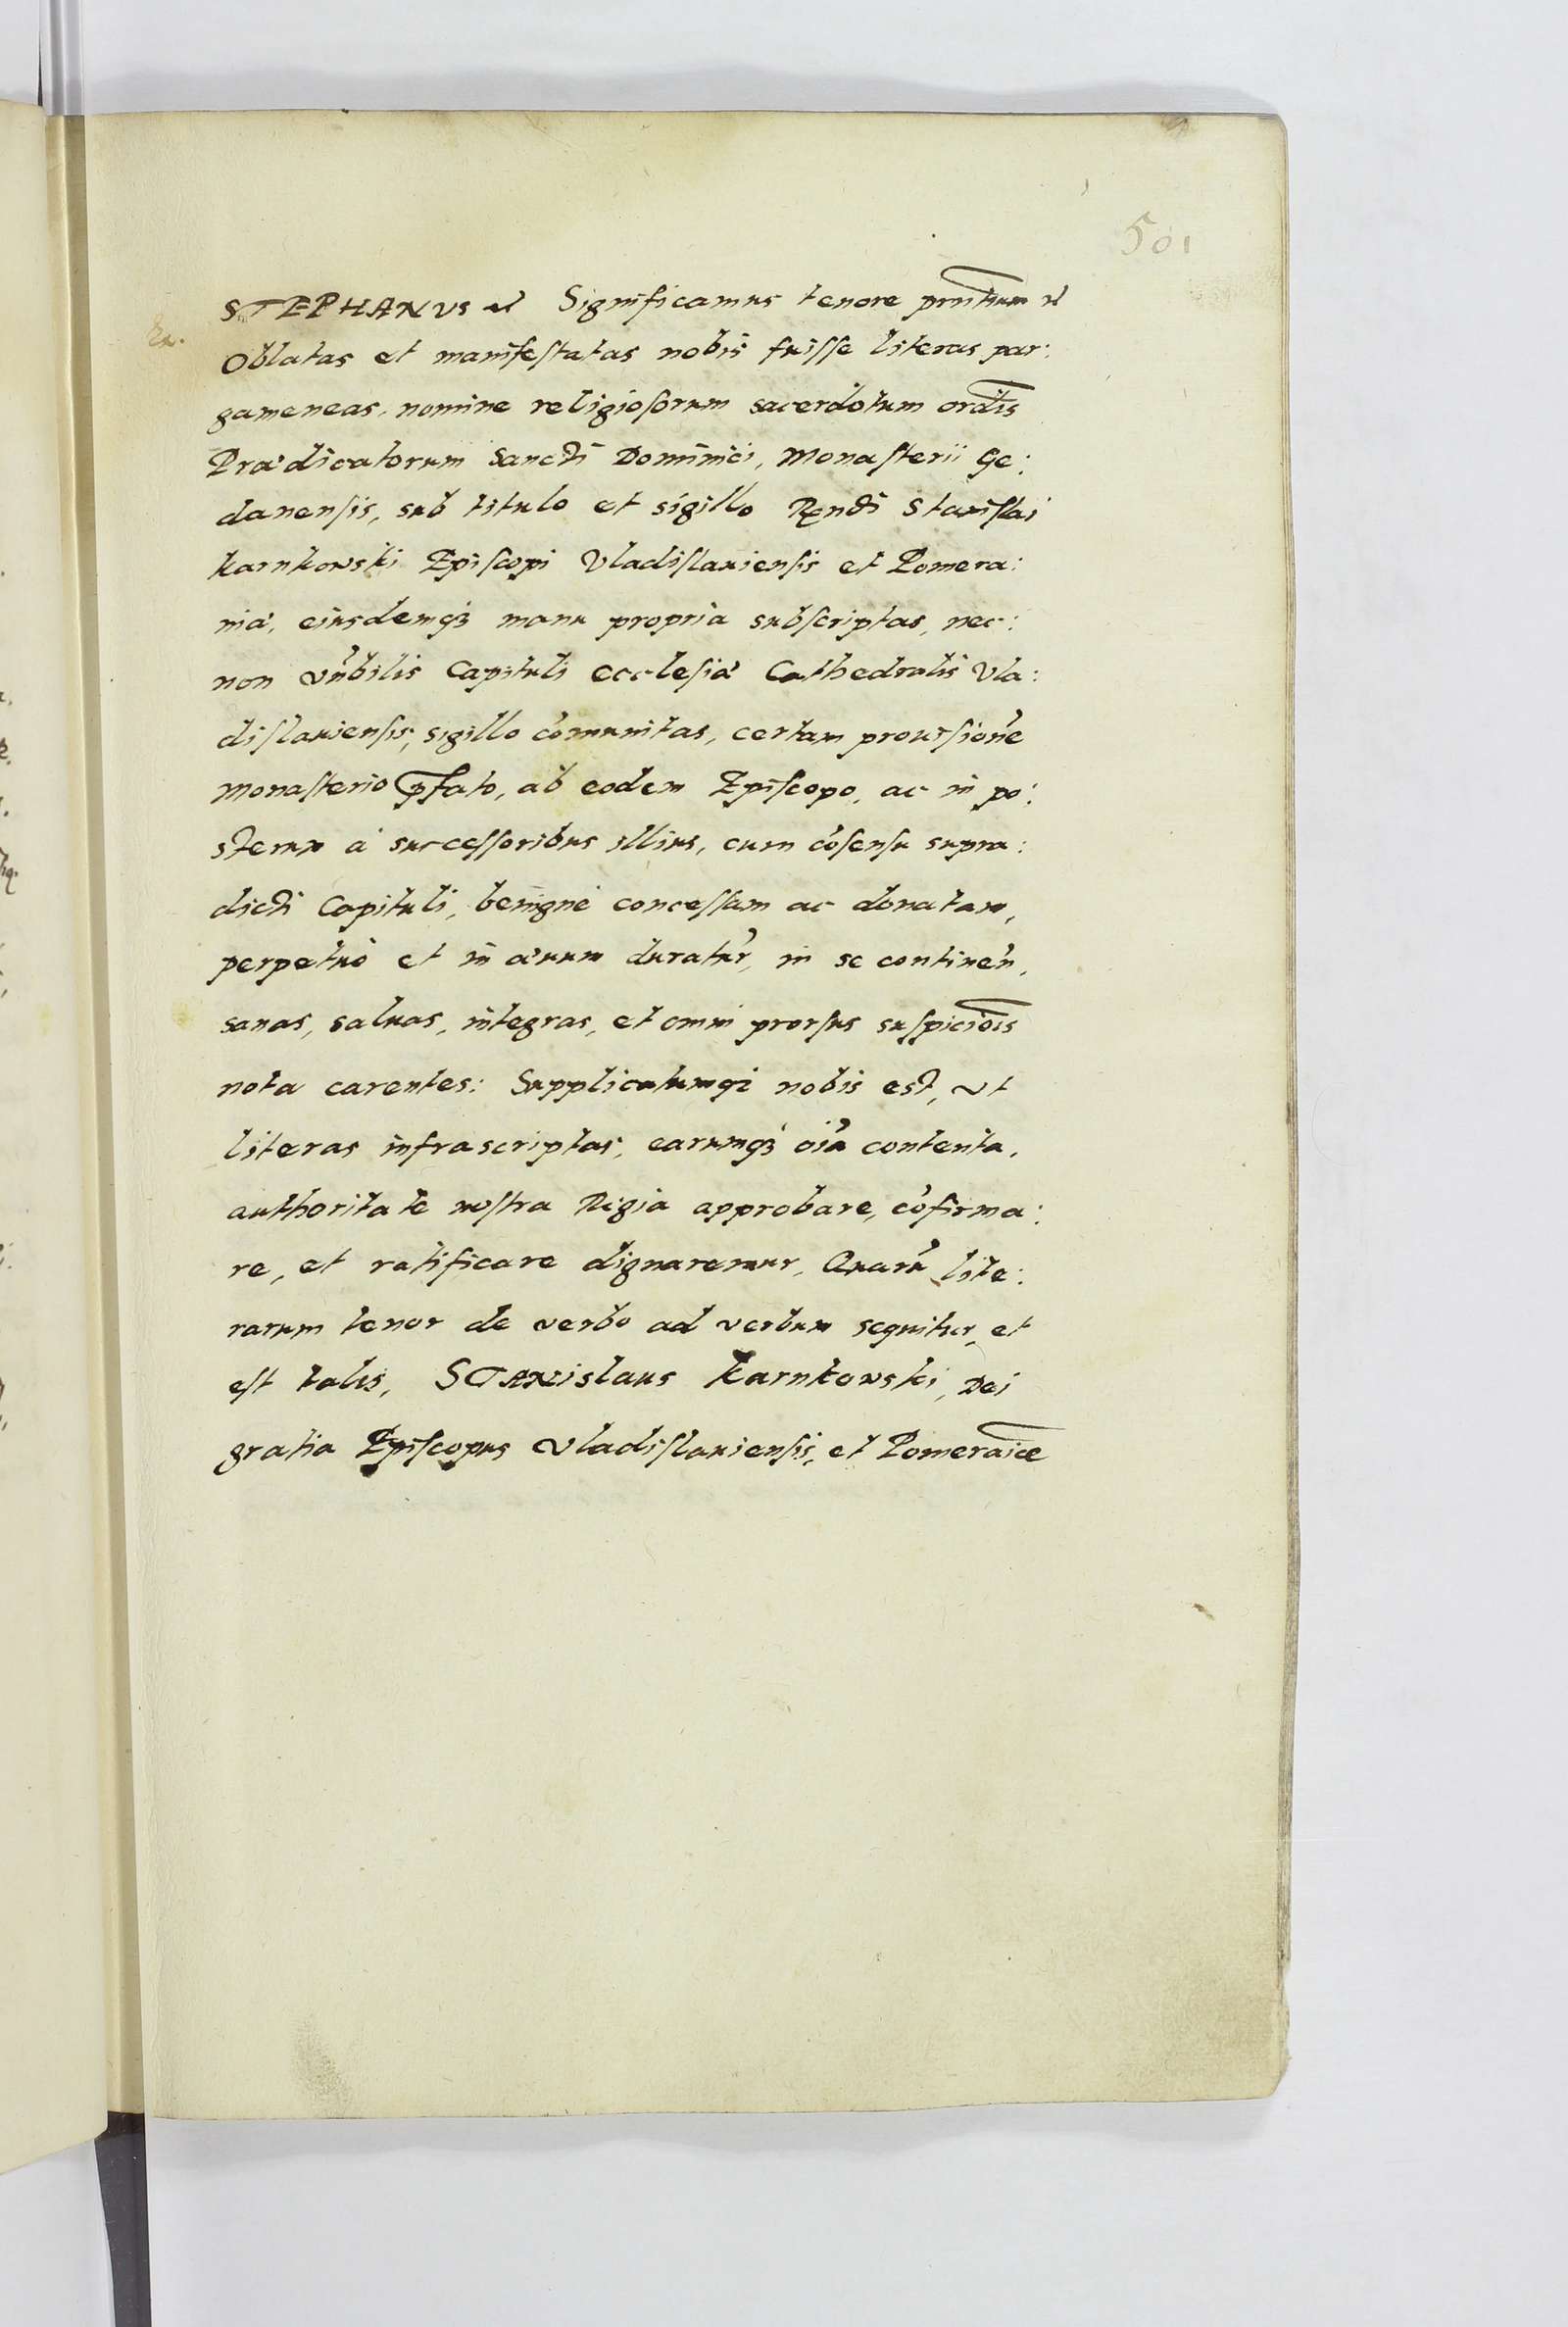 501
STEPHANUS etc Significamus tenore prñtium etc
Ex.
Oblatas et manifestatas nobis fuisse literas par:
gameneas, nomine religiosorum sacerdotum ordĩs
Prædicatorum Sancti Dominici, Monasterii Ge:
danensis, sub titulo et sigillo Rẽndi Stanislai
Karnkowski Episcopi Vladislauiensis et Pomera:
niæ, eiusdemq3 manu propria subscriptas, nec:
non vñbilis Capituli ecclesiæ Cathedralis Vla:
dislauiensis, sigillo cõmunitas, certam prouisionẽ
Monasterio p̃fato, ab eodem Episcopo, ac in po:
sterum à successoribus illius, cum cõsensu supra:
dicti Capituli, benignè concessam ac donatam,
perpetuò et in æuum duratur̃, in se continen̄,
sanas, saluas, integras, et omni prorsus suspiciõis
nota carentes: Supplicatumq3 nobis est, ut
literas infrascriptas, earumq3 oĩa contenta,
authoritate nostra Regia approbare, cõfirma:
re, et ratificare dignaremur, Quarũ lite:
rarum tenor de verbo ad verbum sequitur, et
est talis, STANislaus Karnkowski, Dei
gratia Episcopus Vladislauiensis, et Pomerãiæ